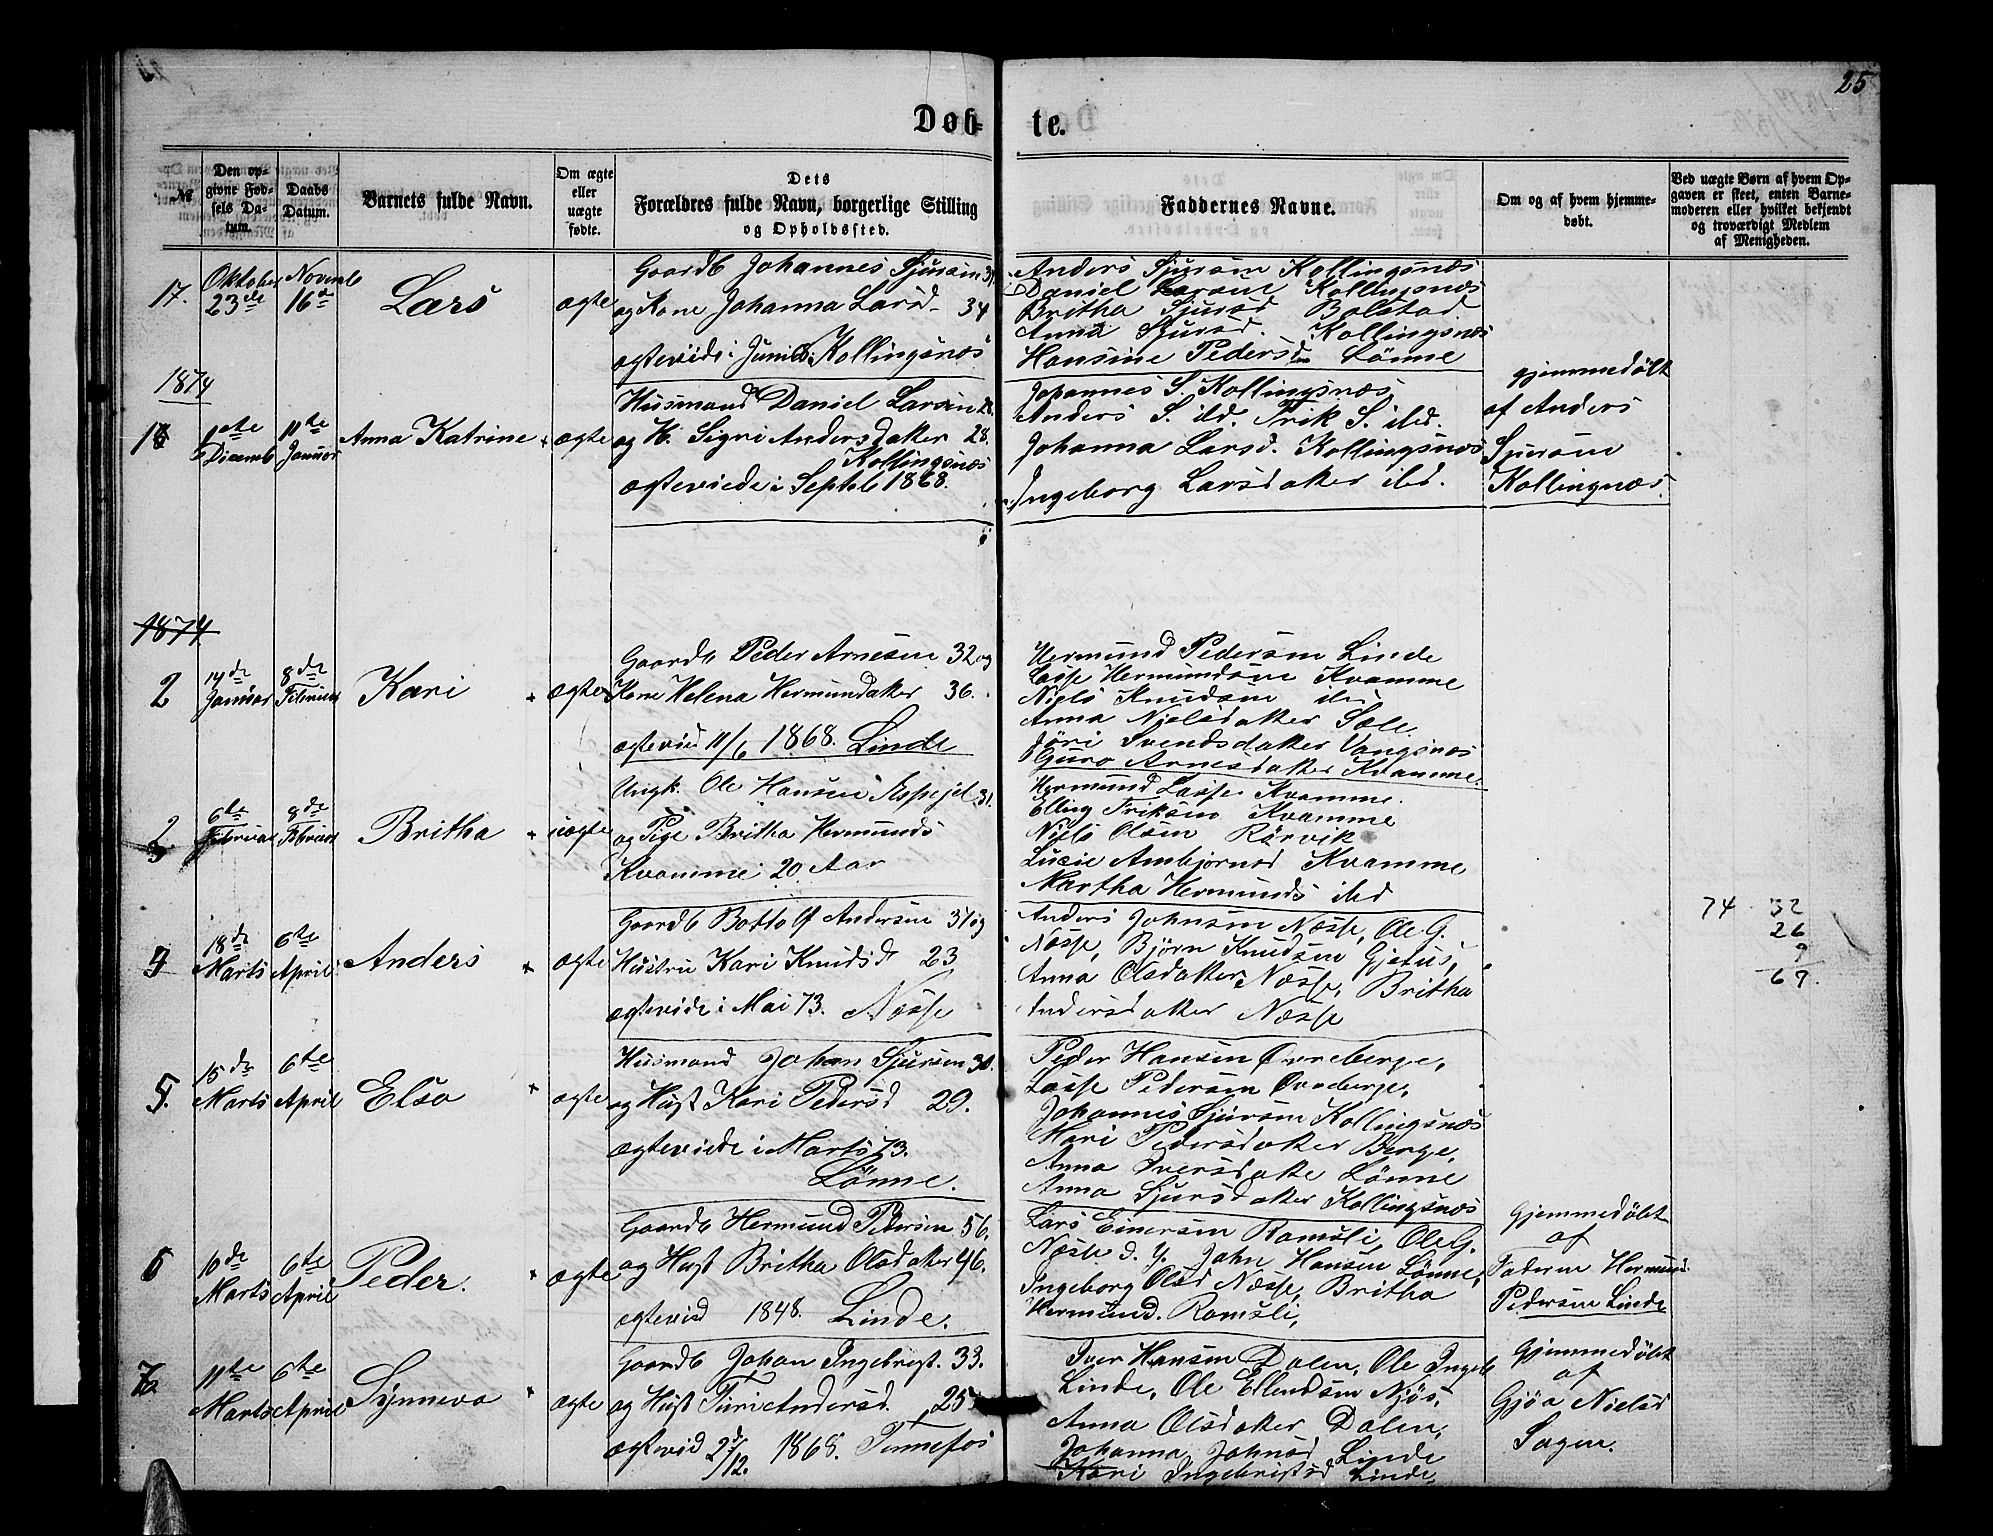 25
Døb-
te.
№
Den op-
givne Fød-
sels Da-
tum.
Daabs
Datum.
Barnets fulde Navn.
Om ægte
eller
uægte
fødte.
Dets
Forældres fulde Navn, borgerlige Stilling
og Opholdssted.
Faddernes Navne.
Om og af hvem hjemme-
døbt.
Ved uægte Børn af hvem Op-
gaven er skeet, enten Barne-
moderen eller hvilket bekjendt
og troværdigt Medlem
af Menigheden.
17.
Oktober
23de
Novemb
16de
Lars
ægte
Gaardb Johannes Sjursen
og Kone Johanna Larsd 34
ægteviede i Kollingsnæs
Anders Sjursøn Kollingsnæs
Daniel Larsøn Kollingsnæs
Britha Sjursd Bolstad
Anna Sjursd. Kollingsnæs
Hansine Pedersd Lønne
1874
1
1ste
Decemb
11te
Januar
Anna Katrine
ægte
Husmand Daniel Larsen
og H. Sigri Andersdatter 28.
Kollingsnæs
ægteviede i Septbr 1868.
Johannes S. Kollingsnæs
Anders S. ibd. Erik S. ibd.
Johanna Larsd. Kollingsnæs
Ingeborg Larsdatter ibd.
Hjemmedøbt
af Anders
Sjursøn
Kollingnæs.
1874
2
14de
Januar
8de
Februar
Kari
ægte
Gaardb Peder Arnesen 32 og
Kone Helena Hermundatter 36.
ægtevied 11/6 1868. Linde
Hermund Pedersøn Linde
Lasse Hermundsøn Kvamme
Niels Knudsøn ibd
Anna Nielsdatter Sæle
Jøri Svendsdatter Vangsnæs
Guro Arnesdatter Kvamme.
3
6te
Februar
8de
Februar
Britha
uægte
Ungk. Ole Hansen 31.
og Pige Britha Hermunds
Kvamme 20 Aar
Hermund Lasse Kvamme.
Elling Eriksøn Kvamme
Niels Olsøn Rørvik
Lucie Ambjørnsd Kvamme
Martha Hermunds ibd
4
18de
Marts
6te
April
Anders
ægte
Gaardb Bottolf Andersen 31 og
Hustru Kari Knudsd 23
ægteviede i Mai 73. Næsse
Anders Johnsøn Næsse, Ole G.
Næsse, Bjørn Knudsøn
Anna Olsdatter Næsse, Britha
Andersdatter Næsse
74 32
26
9
67.
5.
15de
Marts
6te
April
Elsa
ægte
Husmand Johan Sjursen 30.
og Hust Kari Pedersd 29.
ægteviede i Marts 73.
Lønne.
Peder Hansøn Øvreberge,
Lasse Pedersøn Øvreberge,
Johannes Sjursøn Kollingsnæs
Mari Pedersdatter Berge,
Anna Iversdatte Lønne
Anna Sjursdatter Kollingsnæs
6
10de
Marts
6te
April
Peder.
ægte
Gaardb Hermund Pedersen 56.
og Hust Britha Olsdatter 46.
ægtevied 1848. Linde.
Lars Einersøn Romsli, Ole G.
Næsse d. y. John Hansen Lønne,
Ingeborg Olsd Næsse, Britha
Hermund. Romsli,
Hjemmedøbt
af
Faderen Hermund
Pedersøn Linde
7
11te
Marts
6te
April
Synneva
ægte
Gaardb Johan Ingebrigt. 33.
og Hust Turi Andersd. 25
ægtevied 1868. Tennefos
Iver Hansøn Dalen, Ole Ingeb
Linde, Ole Ellendsøn Njøs,
Anna Olsdatter Dalen,
Johanna Johnsd Linde
Kari Ingebrigtsd Linde
Hjemmedøbt
af
Gjøa Nielsd
Sagen.